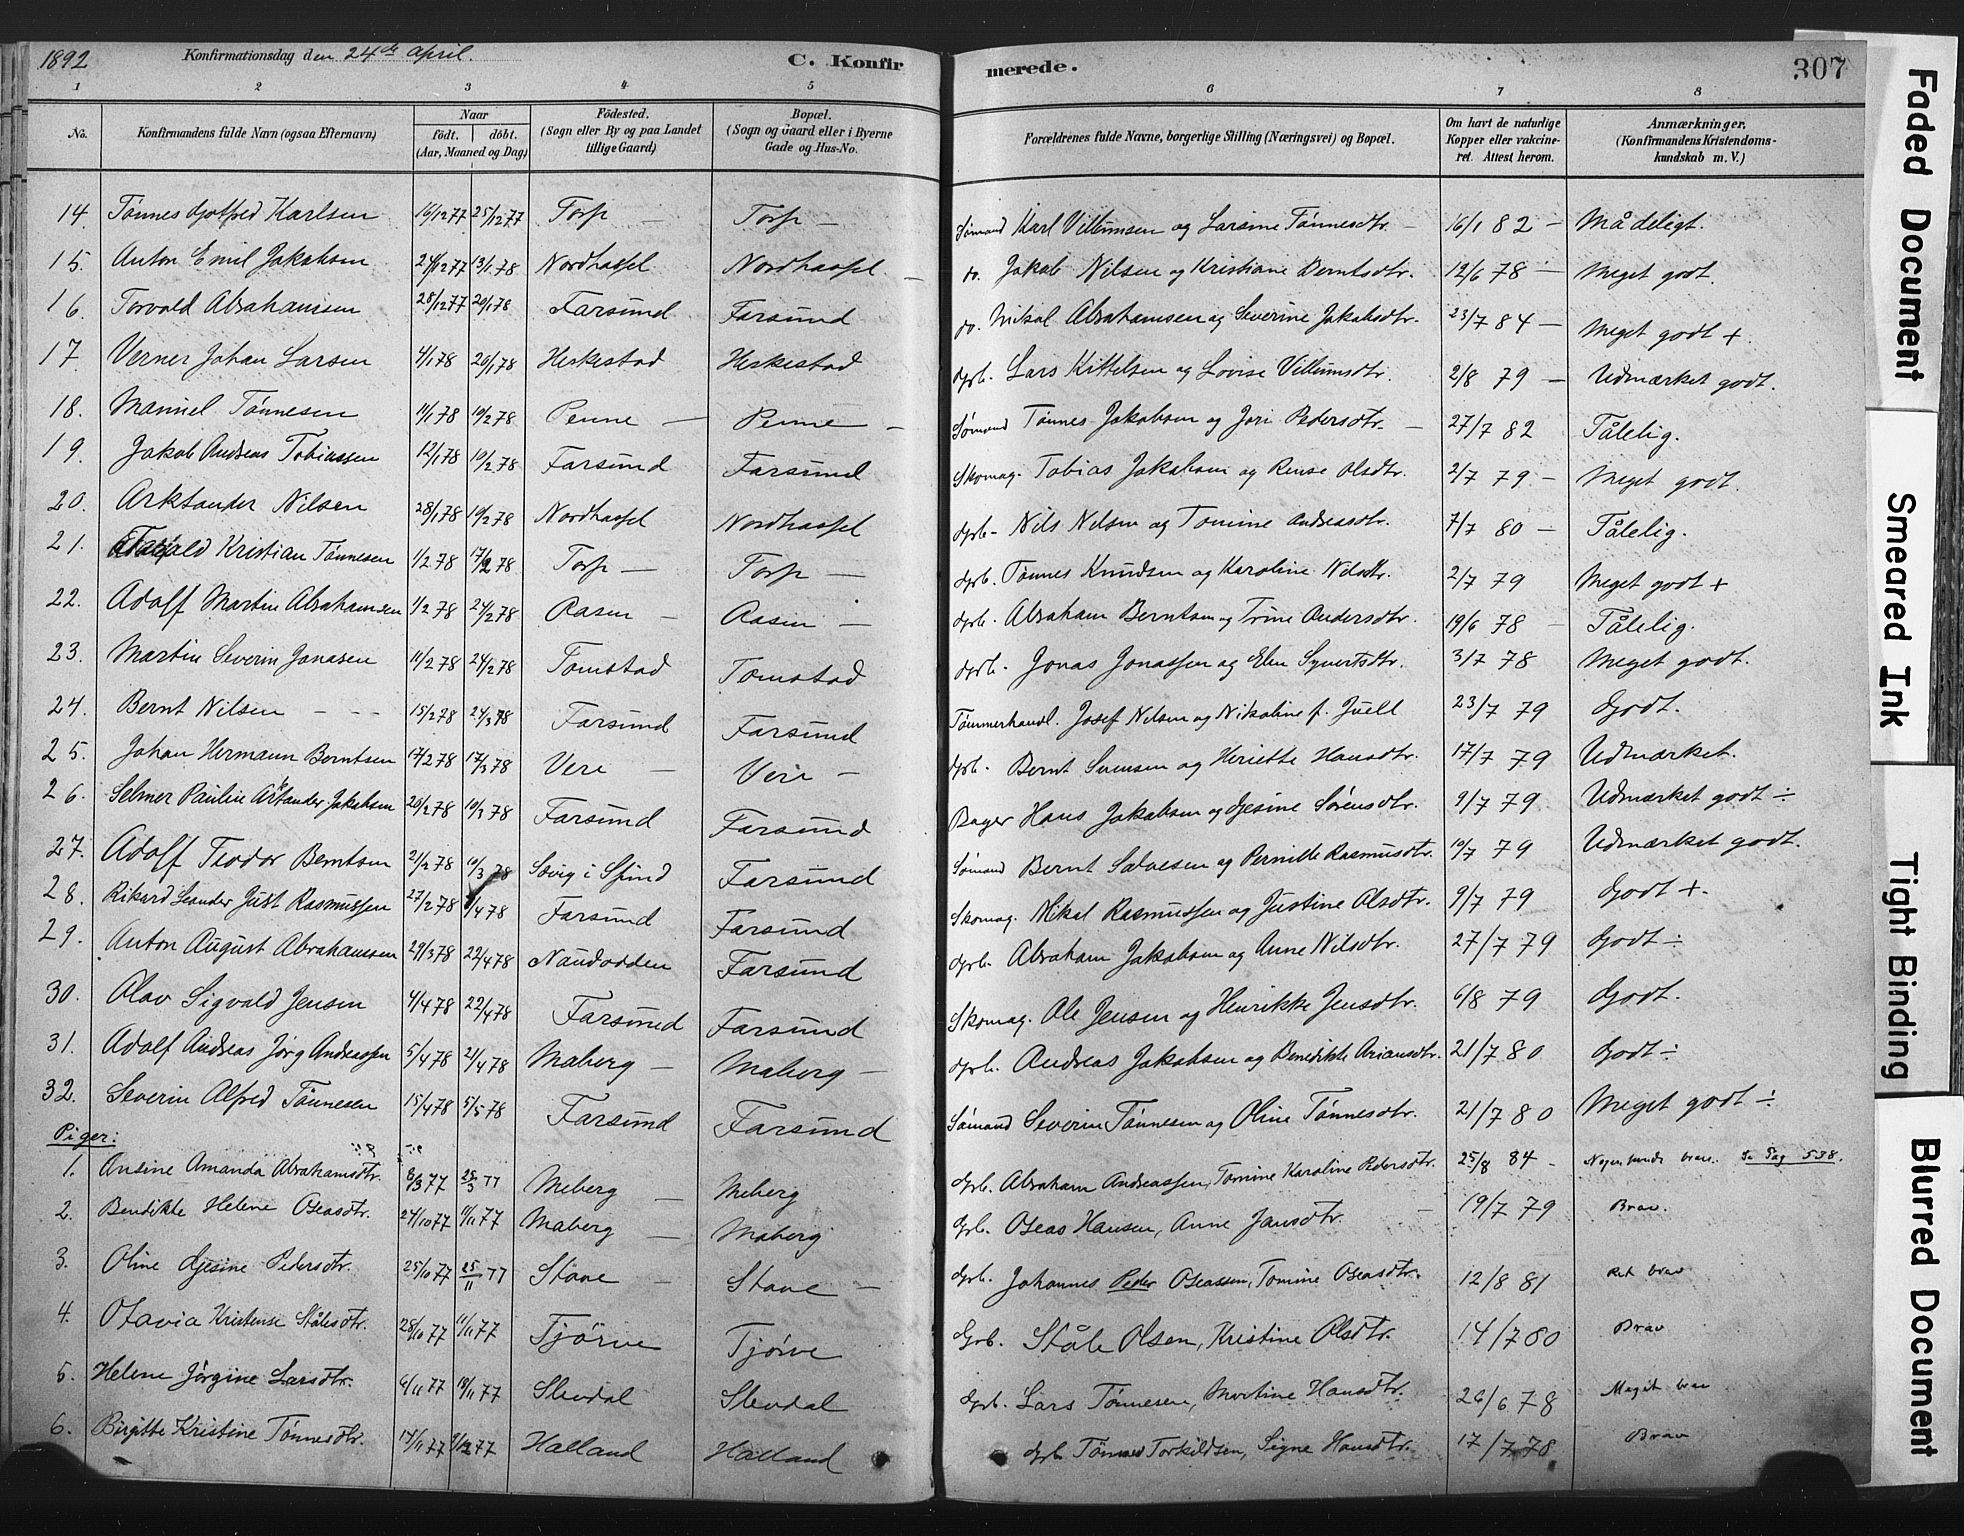 1892 Konfirmationsdag den 24de April. C. Konfirmerede. 307
1 2 3 4 5 6 7 8
No. Konfirmandens fulde Navn (ogsaa Efternavn) Naar født. døbt. (Aar, Maaned og Dag) Fødested. (Sogn eller By og paa Landet tillige Gaard) Bopæl. (Sogn og Gaard eller i Byerne Gade og Hus-No. Forældrenes fulde Navne, borgerlige Stilling (Næringsvei) og Bopæl. Om havt de naturlige Kopper eller vakcineret. Attest herom. Anmærkninger. (Konfirmandens Kristendomskundskab m. V.)
14. Tønnes Gotfred Karlsen 16/12 77 25/12 77 Torp — Torp — Sømand Karl Villumsen og Larsine Tønnesdtr. — 16/1 82 — Mådeligt.
15. Anton Emil Jakobsen 24/12 77 13/1 78 Nordhassel Nordhassel — do. Jakob Nilsen og Kristiane Berntsdtr. 12/6 78 — Meget godt.
16. Torvald Abrahamsen 28/12 77 20/1 78 Farsund Farsund do. Mikal Abrahamsen og Severine Jakobsdtr. 23/7 84 — Meget godt +.
17. Verner Johan Larsen 4/1 78 20/1 78 Heskestad Heskestad Grb. Lars Kittelsen og Lovise Villumsdtr. 2/8 79 — Udmærket godt.
18. Manuel Tønnesen 11/1 78 10/2 78 Penne — Penne — Sømand Tønnes Jakobsen og Jori Pedersdtr. — 27/7 82 Tålelig.
19. Jakob Andreas Tobiassen 12/1 78 10/2 78 Farsund Farsund Skomag. Tobias Jakobsen og Rense Olsdtr. 2/7 79 — Meget godt.
20. Arktander Nilsen 28/1 78 10/2 78 Nordhassel Nordhassel Grb. Nils Nilsen og Tomine Andreasdtr. 7/7 80 — Tålelig.
21. Kristian Tønnesen 1/2 78 17/2 78 Torp — Torp — Grb. Tønnes Knudsen og Karoline Nilsdtr. 2/7 79 Meget godt +
22. Adolf Martin Abrahamsen 1/2 78 24/2 78 Aasen — Aasen — Grb. Abraham Berntsen og Trine Andersdtr. 19/6 78 — Tålelig.
23. Martin Severin Jonasen 11/2 78 24/2 78 Tomstad Tomstad Grb. Jonas Jonassen og Elen Syvertsdtr. 3/7 78 Meget godt.
24. Bernt Nilsen — — — 15/2 78 24/3 78 Farsund Farsund Tømmerhandl. Josef Nilsen og Nikoline f. Juell 23/7 79 Godt.
25. Johan Hermann Berntsen 17/2 78 17/3 78 Vere — Vere — Grb. Bernt Svensen og Heriette Hansdtr. 17/7 79 Udmærket.
26. Selmer Paulin Arktander Jakobsen 20/2 78 10/3 78 Farsund Farsund Bager Hans Jakobsen og Gjesine Sørensdtr. 9/7 79 Udmærket godt ÷
27. Adolf Teodor Berntsen 21/2 78 10/3 78 Søvig i Spind Farsund Sømand Bernt Salvesen og Pernille Rasmusdtr. 10/7 79 Udmærket godt.
28. Rikard Leander Just Rasmussen 27/2 78 /4 78 Farsund Farsund Skomag. Mikal Rasmussen og Justine Olsdtr. 9/7 79 Godt +
29. Anton August Abrahamsen 29/3 78 22/4 78 Naudodden Farsund Grb. Abraham Jakobsen og Anne Nilsdtr. 27/7 79 Godt ÷
30. Olav Sigvald Jensen 4/4 78 22/4 78 Farsund Farsund Skomag. Ole Jensen og Henrikke Jensdtr. 6/8 79 Godt.
31. Adolf Andreas Jørg Andreassen 5/4 78 21/4 78 Maberg — Maberg — Grb. Andreas Jakobsen og Benedikte Ariansdtr. 21/7 80 Godt ÷
32. Severin Alfred Tønnesen 15/4 78 5/5 78 Farsund Farsund Sømand Severin Tønnesen og Oline Tønnesdtr. 21/7 80 Meget godt ÷
Piger:
1. Ansine Amanda Abrahamsdtr. 8/3 77 25/3 77 Meberg — Meberg Grb. Abraham Andreassen, Tomine Karoline Pedersdtr. 25/8 84 — Se Pag 538.
2. Bendikte Helene Oseasdtr. 24/10 77 11/11 77 Maberg — Maberg Grb. Oseas Hansen, Anne Jansdtr. — 19/7 79 Brav.
3. Oline Gjesine Pedersdtr. 25/10 77 25/11 77 Stave — Stave — Grb. Johannes Peder Oseassen, Tomine Oseasdtr. 12/8 81 Ret brav
4. Otavia Kristense Ståledtr. 28/10 77 11/11 77 Tjørve Tjørve Grb. Ståle Olsen, Kristine Olsdtr. 14/7 80 Brav
5. Helene Jørgine Larsdtr. 6/11 77 18/11 77 Slevdal Slevdal Grb. Lars Tønnesen, Martine Hansdtr. 26/6 78 Meget brav
6. Birgitte Kristine Tønnesdtr. 14/11 77 9/12 77 Halland Halland Grb. Tønnes Torkildsen, Signe Hansdtr. 17/7 78 Brav
Faded Document
Smeared Ink
Tight Binding
Blurred Document